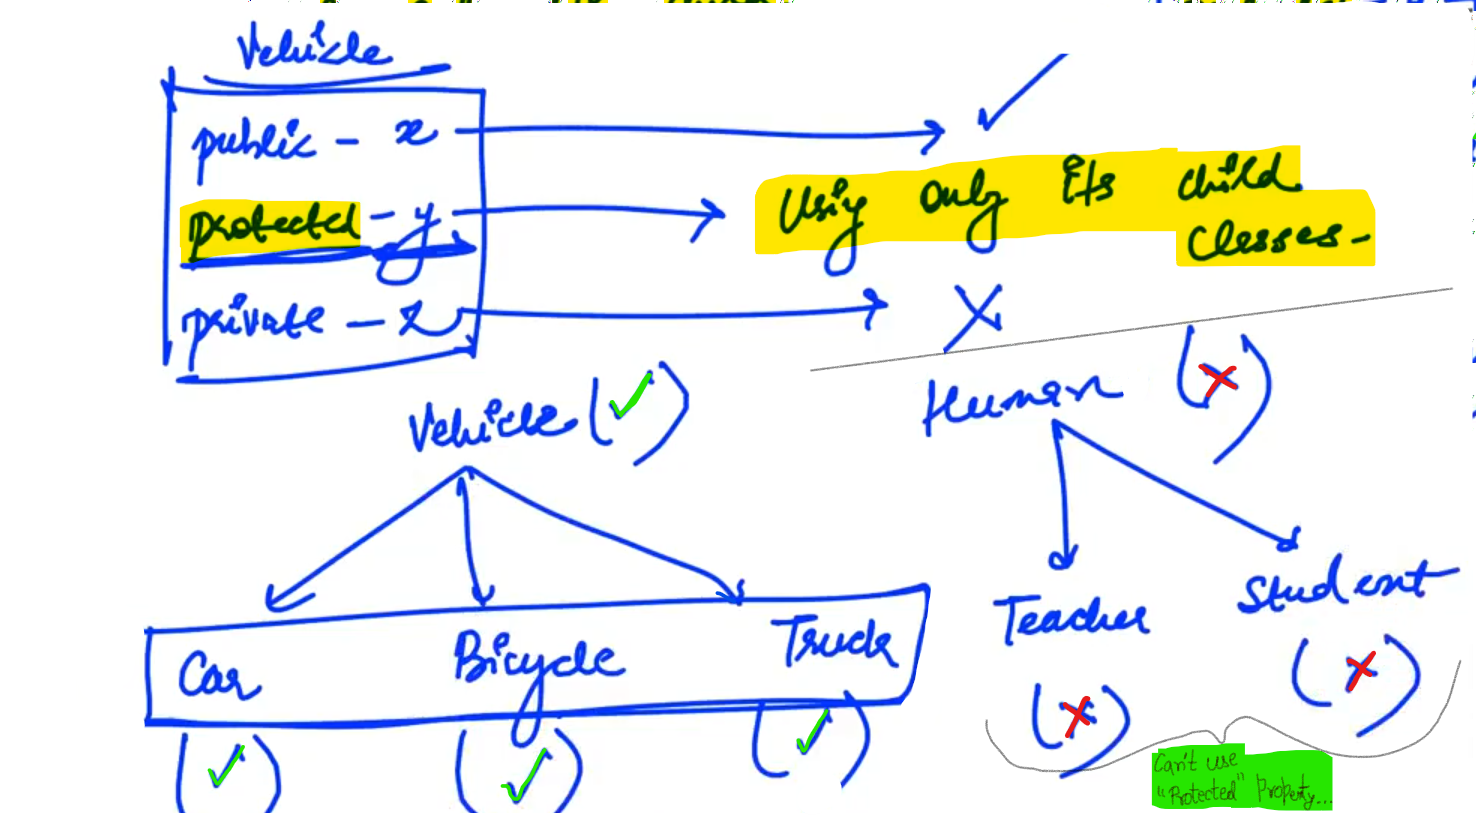 Vehicle
public - x
protected - y
Using only its child
classes-
private - z
Vehicle
Human
Car
Bicycle
Truck
Teacher
Student
Can't use
"Protected" Property...